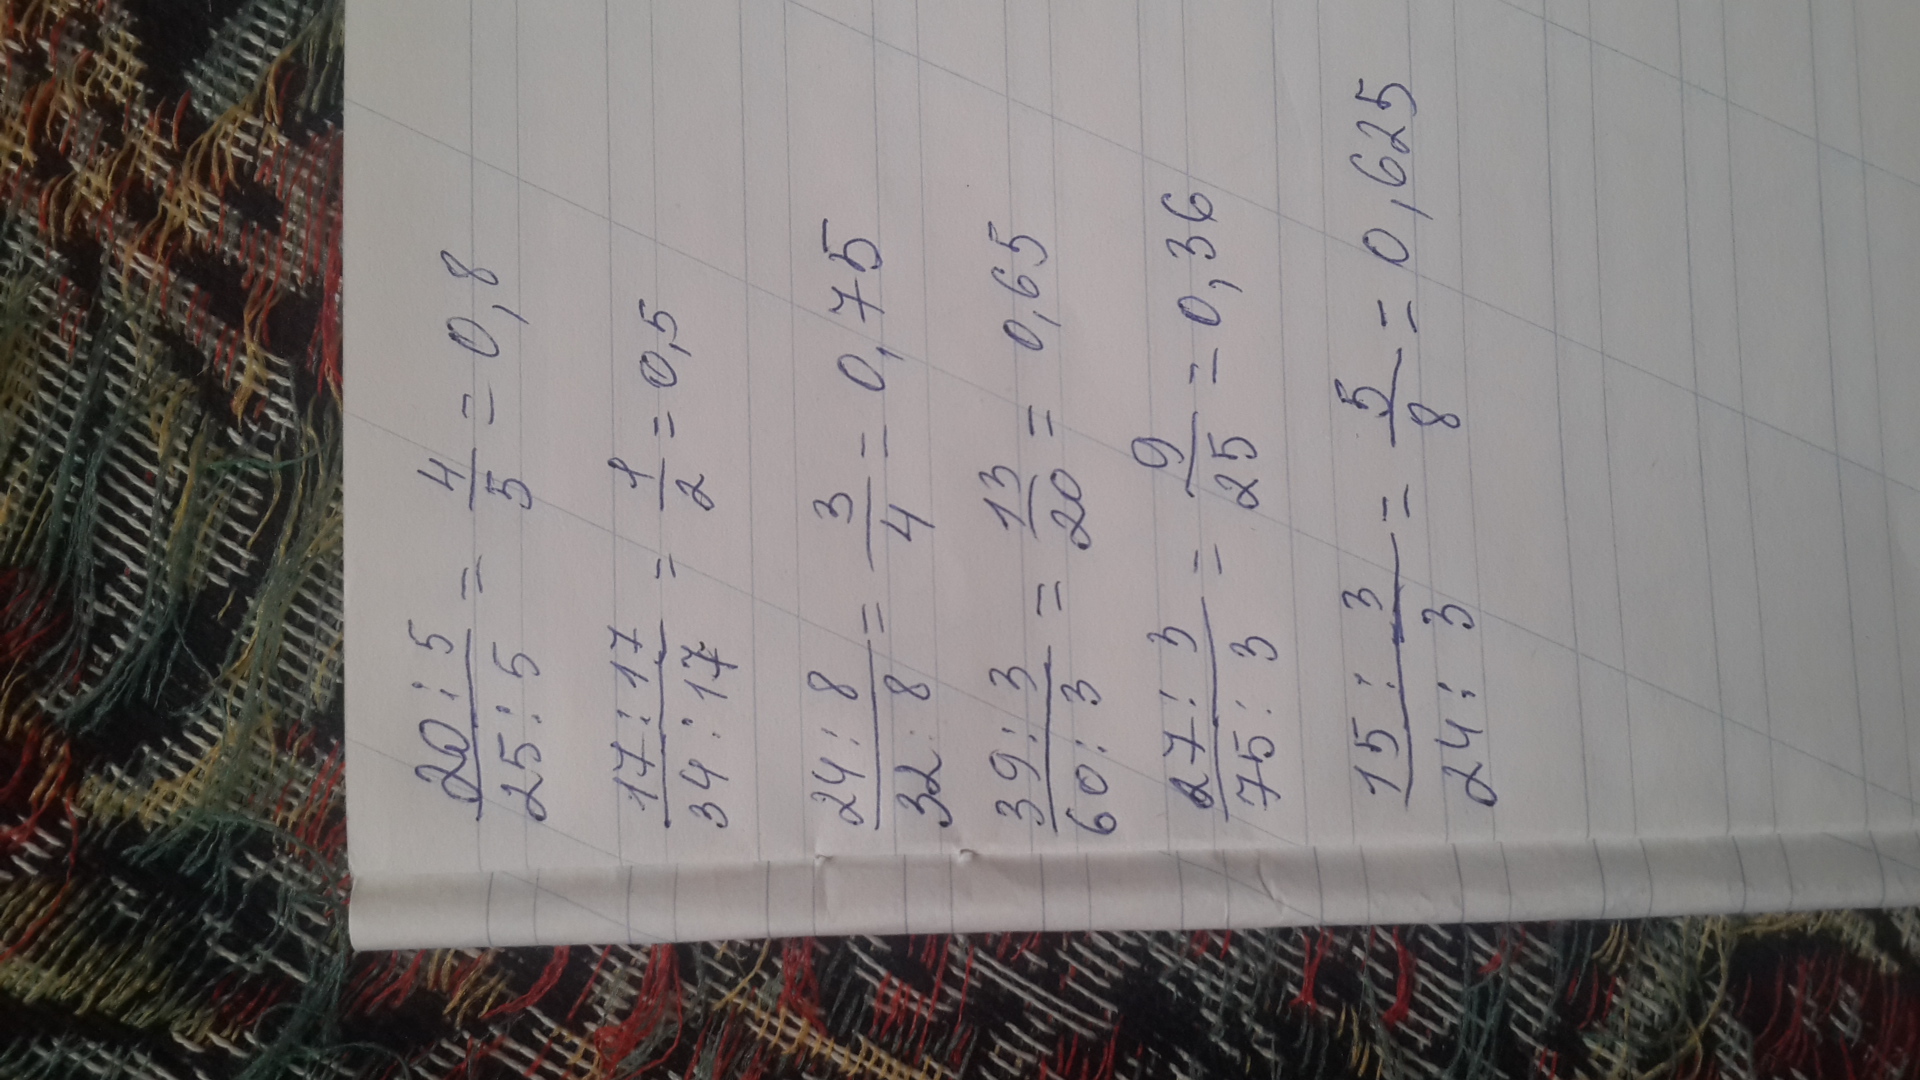 20:5/25:5 = 4/5 = 0,8
17:17/34:17 = 1/2 = 0,5
24:8/32:8 = 3/4 = 0,75
39:3/60:3 = 13/20 = 0,65
27:3/75:3 = 9/25 = 0,36
15:3/24:3 = 5/8 = 0,625